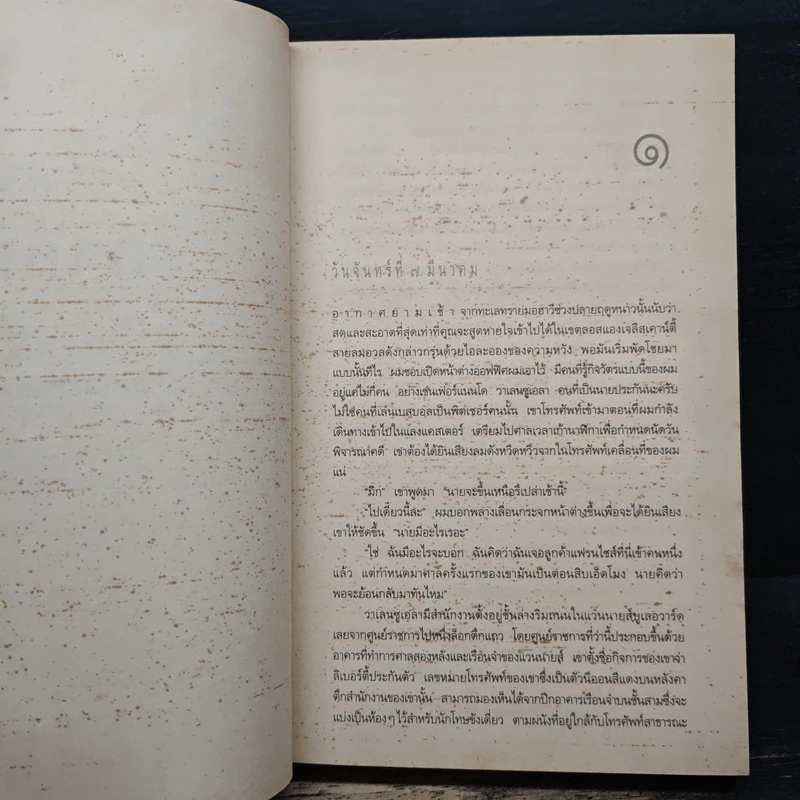 ๑
วันจันทร์ที่ ๗ มีนาคม
อากาศยามเช้า จากทะเลทรายมอฮาวีช่วงปลายฤดูหนาวนั้นนับว่า
สดและสะอาดที่สุดเท่าที่คุณจะสูดหายใจเข้าไปได้ในเขตลอสแองเจลิสเคาน์ตี้
สายลมอวลดังกล่าวกรุ่นด้วยไอละอองของความหวัง พอมันเริ่มพัดโชยมา
แบบนั้นทีไร ผมชอบเปิดหน้าต่างออฟฟิศผมเอาไว้ มีคนที่รู้กิจวัตรแบบนี้ของผม
อยู่แค่ไม่กี่คน อย่างเช่นเฟอร์นานโด วาเลนซูเอลา คนที่เป็นนายประกันนะครับ
ไม่ใช่คนที่เล่นเบสบอลเป็นพิตเชอร์คนนั้น เขาโทรศัพท์เข้ามาตอนที่ผมกำลัง
เดินทางเข้าไปในแลงแคสเตอร์ เตรียมไปศาลเวลาเก้านาฬิกาเพื่อกำหนดนัดวัน
พิจารณาคดี เขาต้องได้ยินเสียงลมดังหวีดหวิวจากในโทรศัพท์เคลื่อนที่ของผม
แน่
“มิก” เขาพูดมา “นายจะขึ้นเหนือรึเปล่าเช้านี้”
“ไปเดี๋ยวนี้ละ” ผมบอกพลางเลื่อนกระจกหน้าต่างขึ้นเพื่อจะได้ยินเสียง
เขาให้ชัดขึ้น “นายมีอะไรเรอะ”
“ใช่ ฉันมีอะไรจะบอก ฉันคิดว่าฉันเจอลูกค้าแฟรนไชส์ที่นี่เข้าคนหนึ่ง
แล้ว แต่กำหนดมาศาลครั้งแรกของเขามันเป็นตอนสิบเอ็ดโมง นายคิดว่า
พอจะย้อนกลับมาทันไหม”
วาเลนซูเอลามีสำนักงานตั้งอยู่ชั้นล่างริมถนนในแวนนายส์บูเลอวาร์ด
เลยจากศูนย์ราชการไปหนึ่งล็อกตึกแถว โดยศูนย์ราชการที่ว่านี้ประกอบขึ้นด้วย
อาคารที่ทำการศาลสองหลังและเรือนจำของแวนนายส์ เขาตั้งชื่อกิจการของเขาว่า
ลิเบอร์ตี้ประกันตัว เลขหมายโทรศัพท์ของเขาซึ่งเป็นตัวนีออนสีแดงบนหลังคา
ตึกสำนักงานของเขานั้น สามารถมองเห็นได้จากปีกอาคารเรือนจำบนชั้นสามซึ่งจะ
แบ่งเป็นห้องๆ ไว้สำหรับนักโทษขังเดี่ยว ตามผนังที่อยู่ใกล้กับโทรศัพท์สาธารณะ